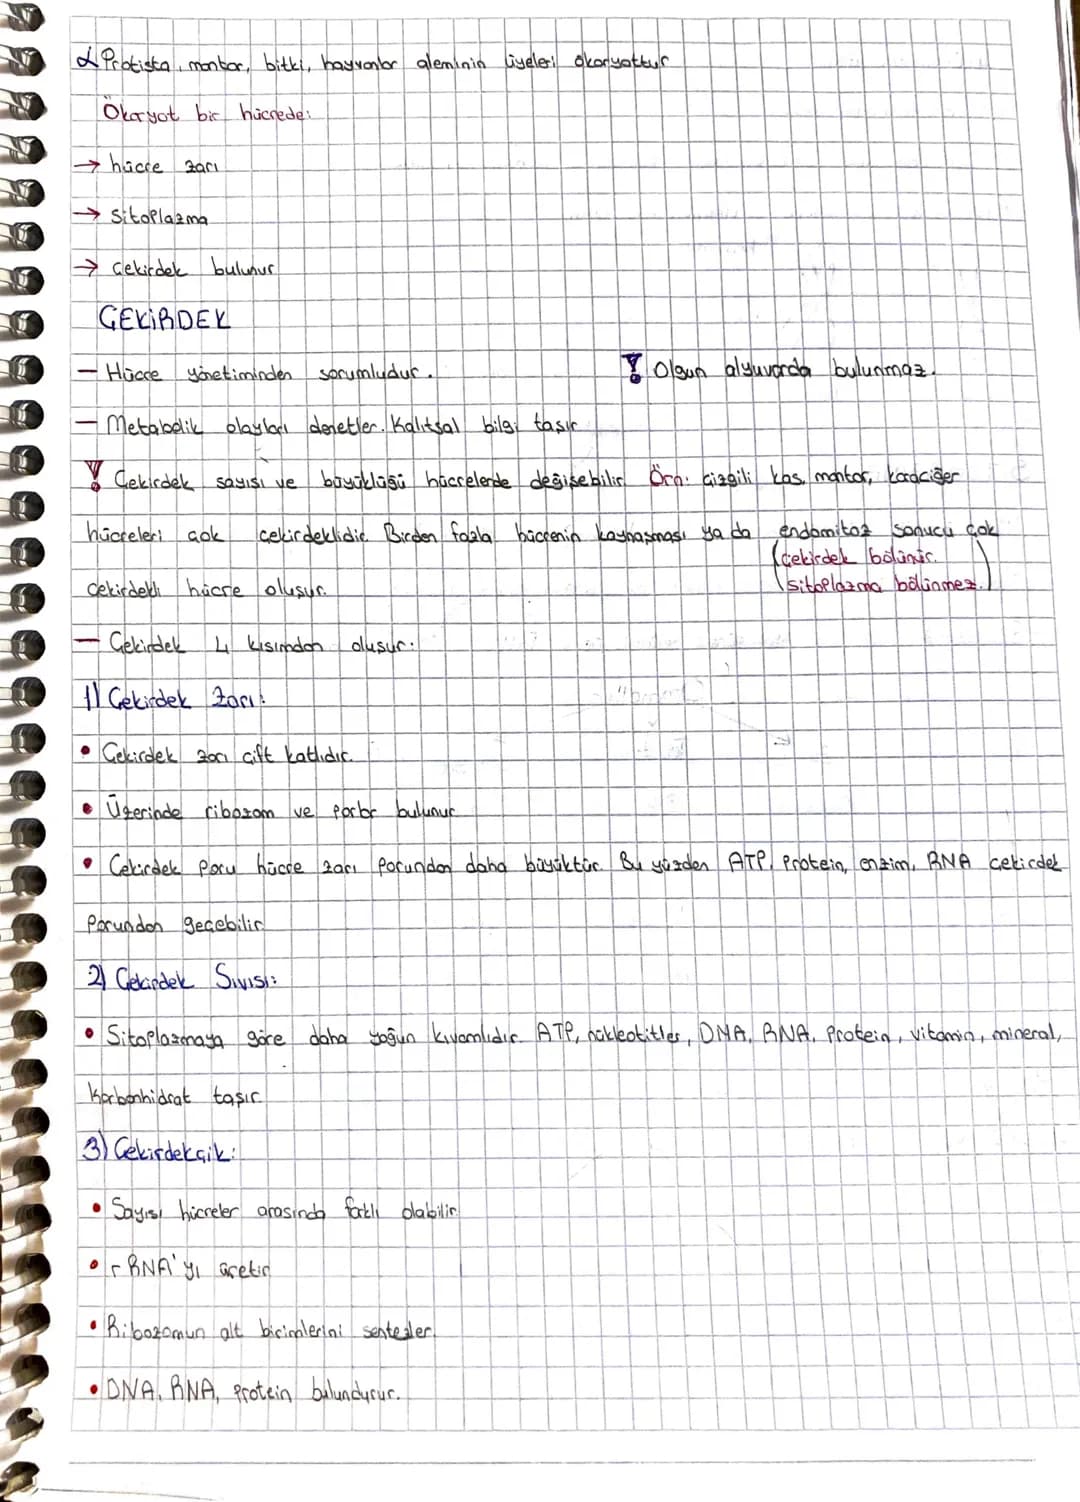 Protista, mantar, bitki, hayvanlar aleminin üyeleri ökaryottur
Ökaryot bir hücrede:
→ hücre zarı
→ Sitoplazma
→ Çekirdek bulunur
ÇEKİRDEK
— Hücre yönetiminden sorumludur.
! Olgun alyuvarda bulunmaz.
— Metabolik olayları denetler. Kalıtsal bilgi taşır
! Çekirdek sayısı ve büyüklüğü hücrelerde değişebilir. Örn: çizgili kas, mantar, karaciğer
hücreleri çok çekirdeklidir. Birden fazla hücrenin kaynaşması ya da endomitoz sonucu çok
(çekirdek bölünür.
sitoplazma bölünmez.)
çekirdekli hücre oluşur.
— Çekirdek 4 kısımdan oluşur.
1) Çekirdek Zarı:
• Çekirdek zarı çift katlıdır.
• Üzerinde ribozom ve porlar bulunur
• Çekirdek poru hücre zarı porundan daha büyüktür. Bu yüzden ATP, Protein, enzim, RNA çekirdek
Porundan geçebilir
2) Çekirdek Sıvısı:
• Sitoplazmaya göre daha yoğun kıvamlıdır. ATP, nükleotitler, DNA, RNA, Protein, vitamin, mineral,
Karbonhidrat taşır.
3) Çekirdekçik:
• Sayısı hücreler arasında farklı olabilir.
• rRNA'yı üretir
• Ribozomun alt birimlerini sentezler.
• DNA, RNA, Protein bulundurur.